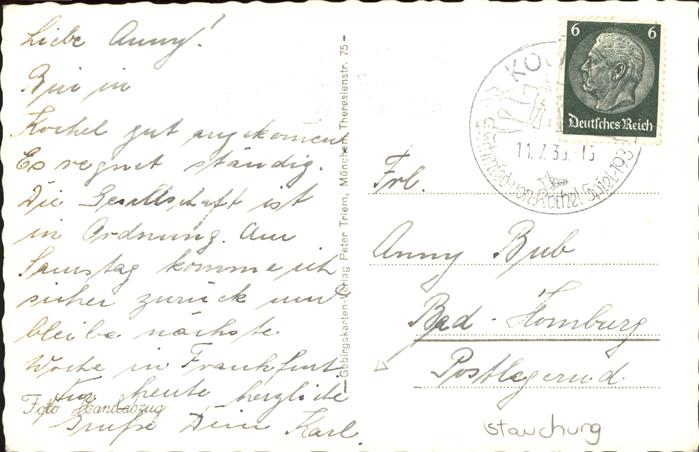 Liebe Anny!
Bin in
Kochel gut angekommen
Es regnet ständig.
Die Gesellschaft ist
in Ordnung. Am
Samstag komme ich
sicher zurück und
bleibe nächste
Woche in Frankfurt.
Für heute herzliche
Grüße Dein Karl.
Foto Handabzug
Gebirgskarten-Verlag Peter Triem, München, Theresienstr. 75
6 6
Deutsches Reich
KO
11.7.39.-15
Schmied-von-Kochel-Spiel-193
Frl.
Anny Bub
Bad-Homburg
Postlagernd
Stauchung